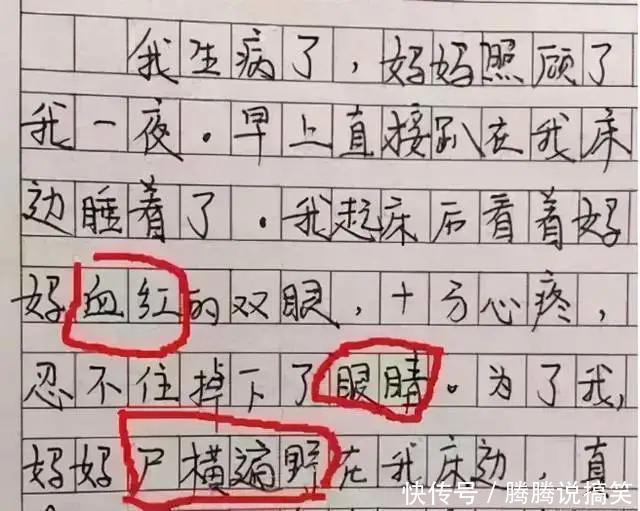 我生病了，妈妈照顾了
我一夜．早上直接趴在我床
边睡着了．我起床后看着妈
妈血红的双眼，十分心疼，
忍不住掉下了眼睛。为了我，
妈妈尸横遍野在我床边，真
快传号 / 腾腾说搞笑